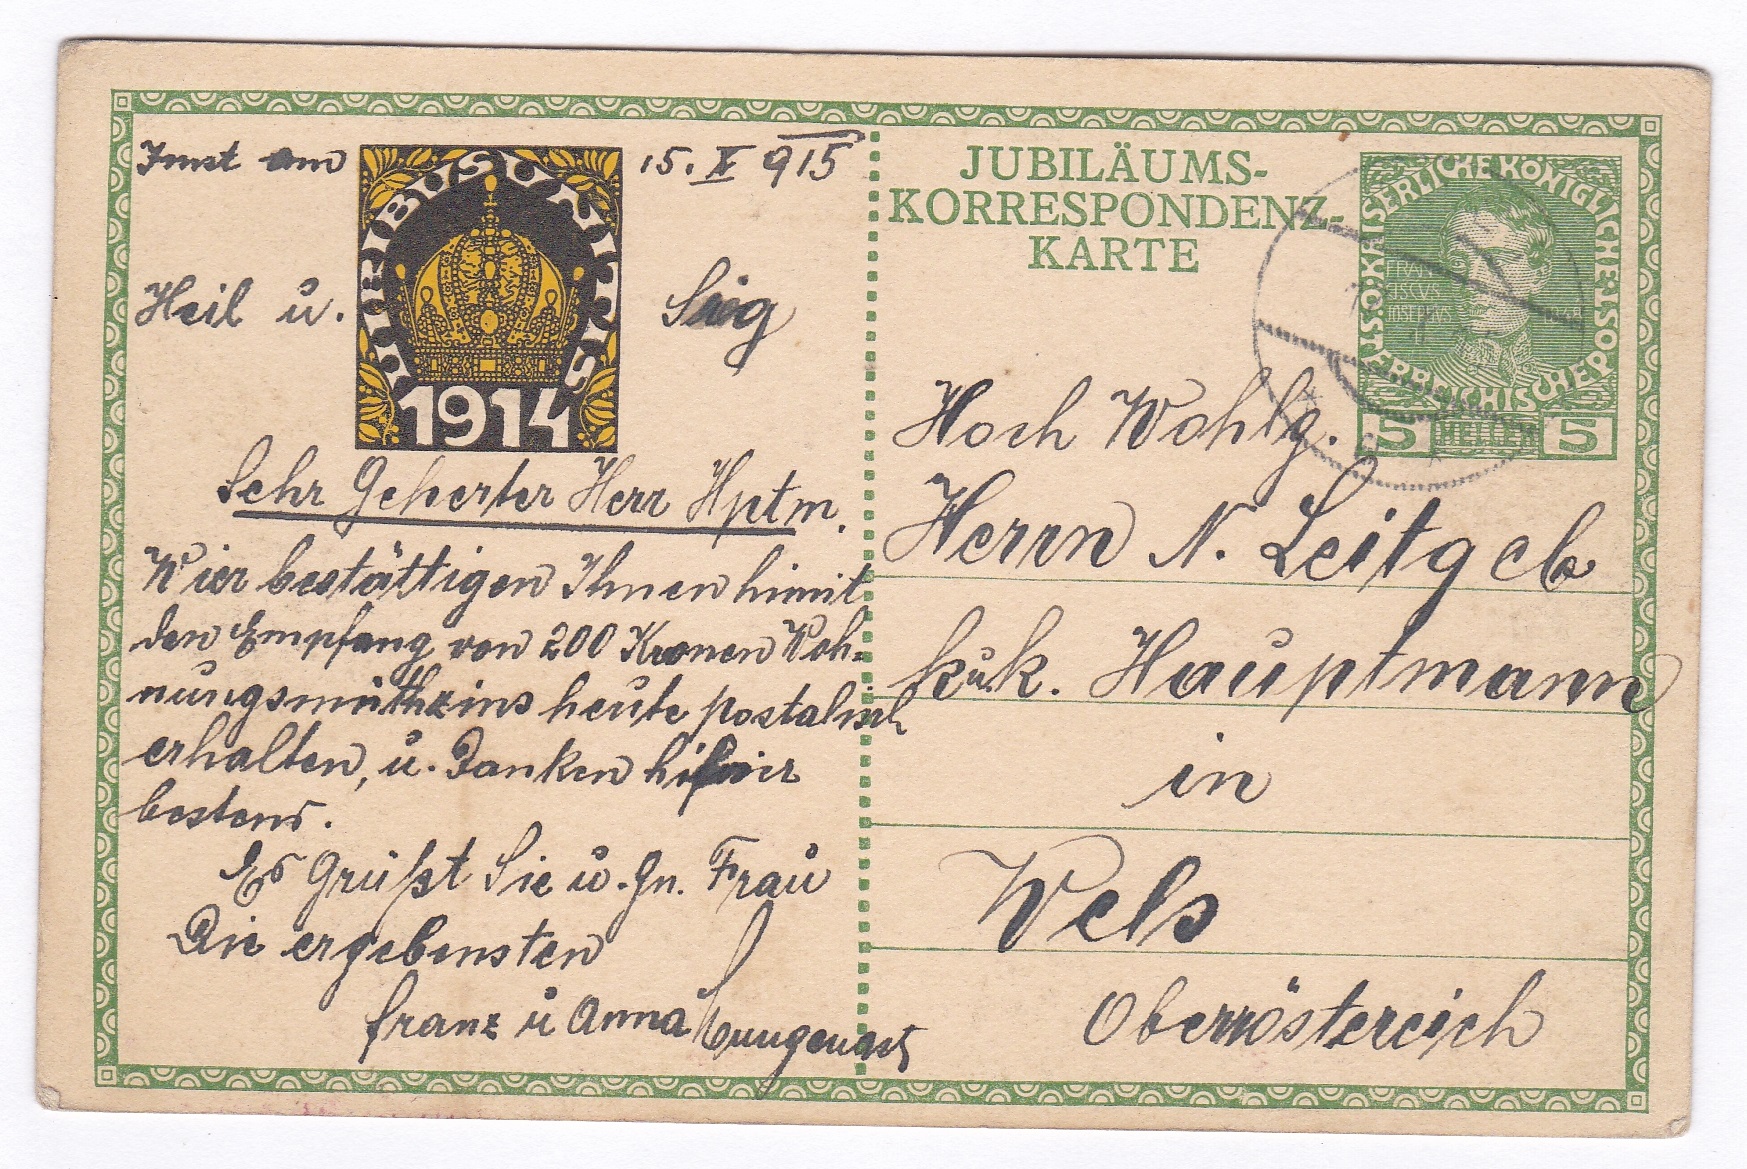 Imst am 15. X 915
VIRIBUS UNITIS
1914
Heil u. Sieg
Sehr Geherter Herr Hptm.
Wier bestättigen Ihnen himit
den Empfang von 200 Kronen Woh-
nungsmüthzins heute postalisch
erhalten, u. Danken hifier
bestens.
Es Grüßt Sie u. gn. Frau
Die ergebensten
Franz u Anna
JUBILÄUMS-
KORRESPONDENZ-
KARTE
KAISERLICHE KÖNIGLICHE ÖSTERREICHISCHE POST
FRAN
ISCVS
IOSEPHVS
5 HELLER 5
Hoch Wohlg.
Herrn N. Leitgeb
k.u.k. Hauptmann
in
Wels
Oberrösterreich